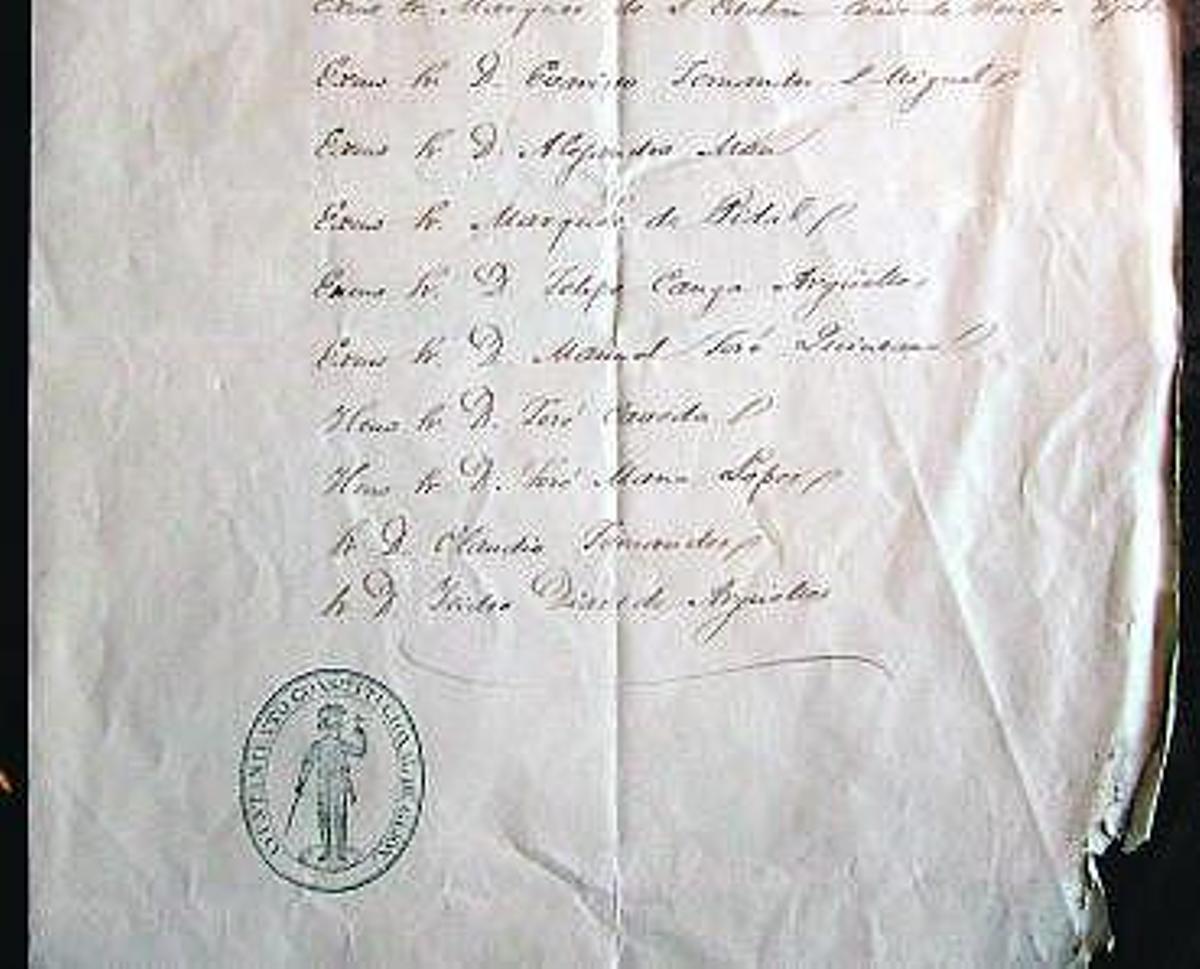 Exmo Sr. Marques de S. Esteban
Exmo Sr. D. Evaristo Fernandez S. Miguel
Exmo Sr. D. Alejandro Mon
Exmo Sr. Marqués de Pidal
Exmo Sr. D. Felipe Canga Argüelles
Exmo Sr. D. Manuel José Quintana
Ylmo Sr. D. José Caveda
Ylmo Sr. D. José Maria Lopez
Sr. D. Claudio Fernandez
Sr. D. Isidro Diaz de Argüelles
AYUNTAMIENTO CONSTITUCIONAL DE GIJON